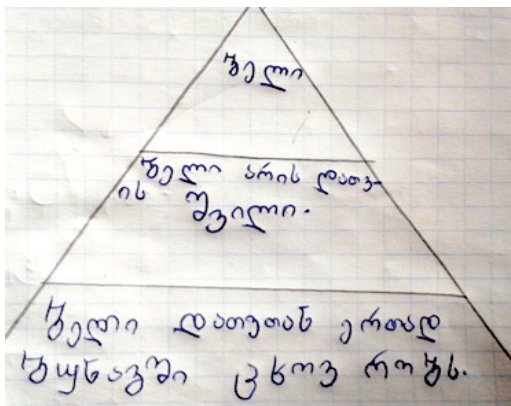 ბელი
ბელი არის დათვ-
ის შვილი.
ბელი დათუთან ერთად
ბუნაგში ცხოვრობს.